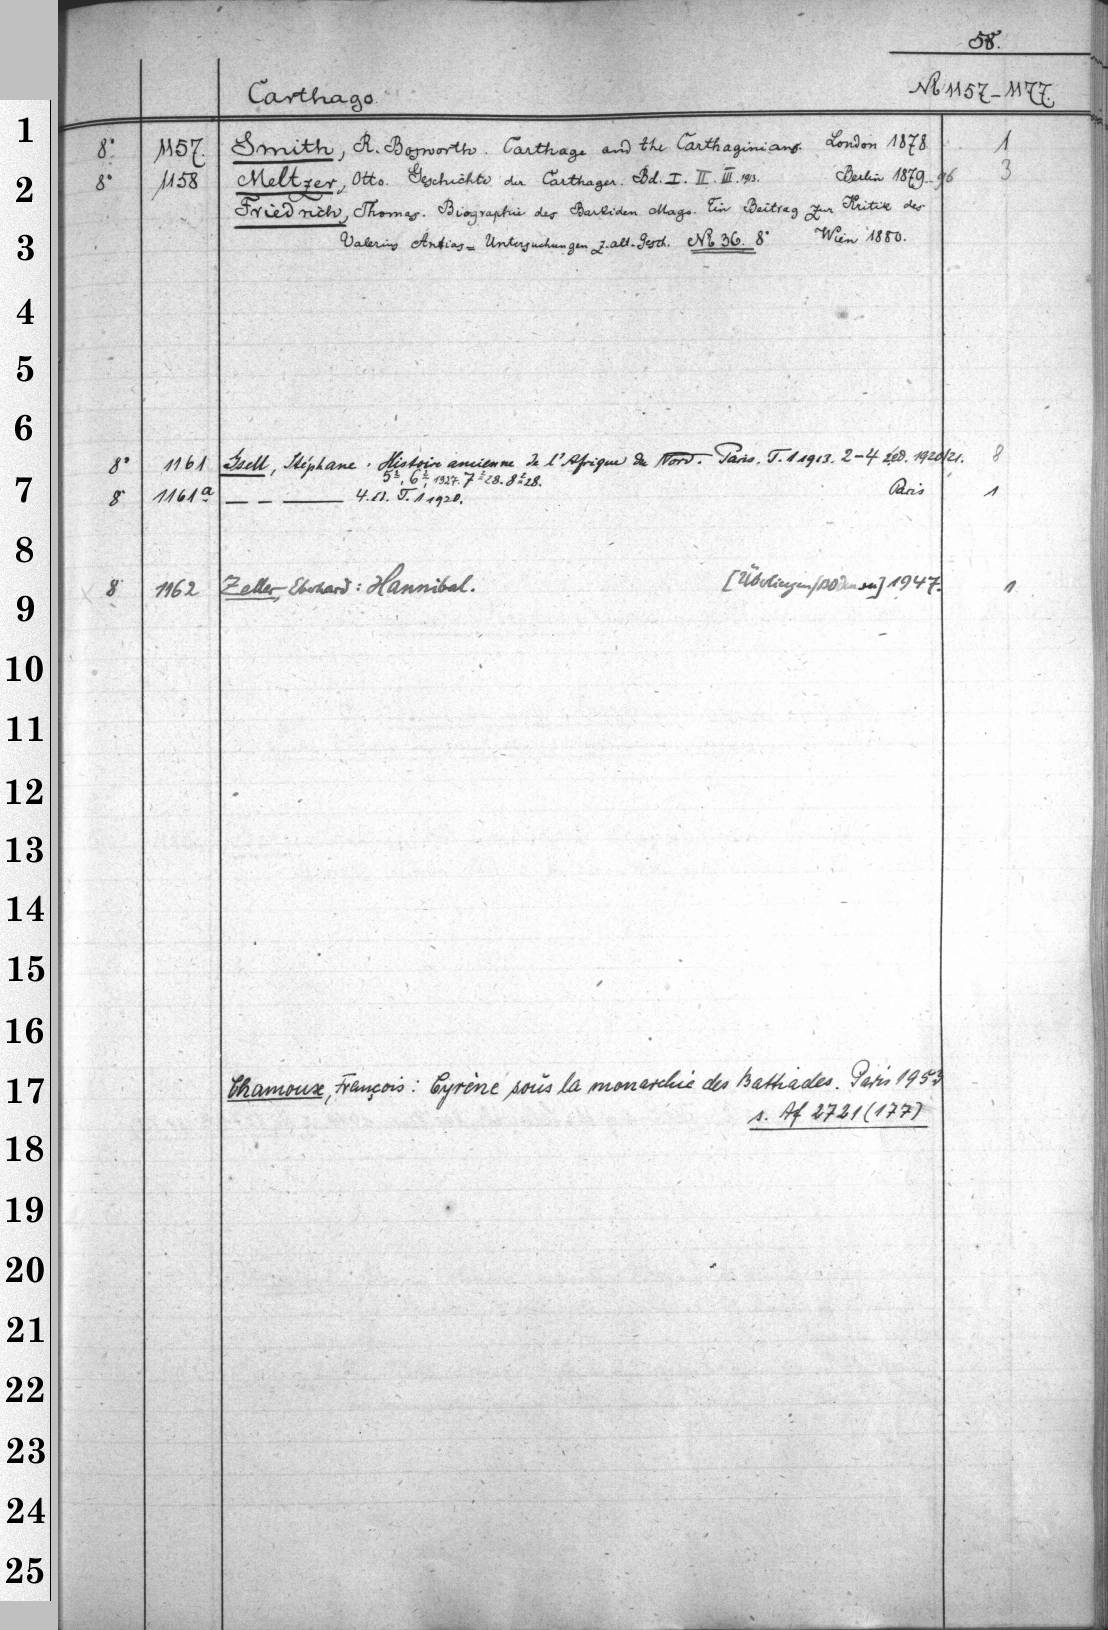 58.
Carthago. № 1157-1177.
8° 1157. Smith, R. Bosworth. Carthage and the Carthaginians. London 1878 1
8° 1158 Meltzer, Otto. Geschichte der Carthager. Bd. I. II. III. 1913. Berlin 1879-96 3
Friedrich, Thomas. Biographie des Barkiden Mago. Ein Beitrag zur Kritik des
Valerius Antias = Untersuchungen z. alt. Gesch. № 36. 8° Wien 1880.
8° 1161 Gsell, Stéphane. Histoire ancienne de l'Afrique du Nord. Paris. T. 1 1913. 2-4 2éd. 1920/21. 8
5², 6², 1927. 7² 28. 8² 28.
8° 1161a — — — 4. T. 1 1920. Paris 1
8° 1162 Zeller, Eberhard: Hannibal. [Überlingen/Bodensee] 1947. 1
Chamoux, François: Cyrène sous la monarchie des Battiades. Paris 1953
s. Af 2721 (177)
1
2
3
4
5
6
7
8
9
10
11
12
13
14
15
16
17
18
19
20
21
22
23
24
25